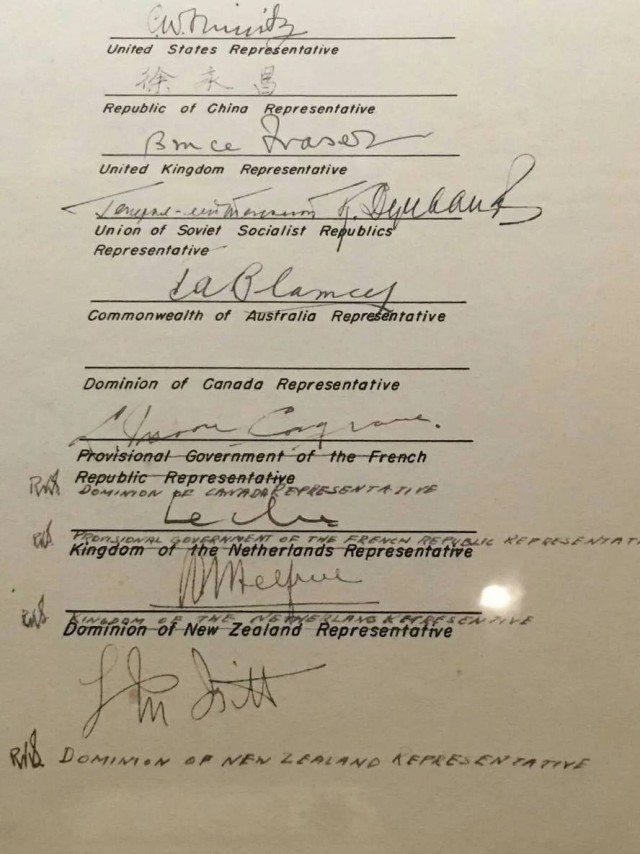 C.W. Nimitz
United States Representative
徐永昌
Republic of China Representative
Bruce Fraser
United Kingdom Representative
Union of Soviet Socialist Republics
Representative
T.A. Blamey
Commonwealth of Australia Representative
Dominion of Canada Representative
L. Moore Cosgrave.
Provisional Government of the French
Republic Representative
RKS DOMINION OF CANADA REPRESENTATIVE
Leclerc
RKS PROVISIONAL GOVERNMENT OF THE FRENCH REPUBLIC REPRESENTAT
Kingdom of the Netherlands Representative
Helfrich
RKS KINGDOM OF THE NETHERLAND REPRESENTATIVE
Dominion of New Zealand Representative
L M Isitt
RKS DOMINION OF NEW ZEALAND REPRESENTATIVE